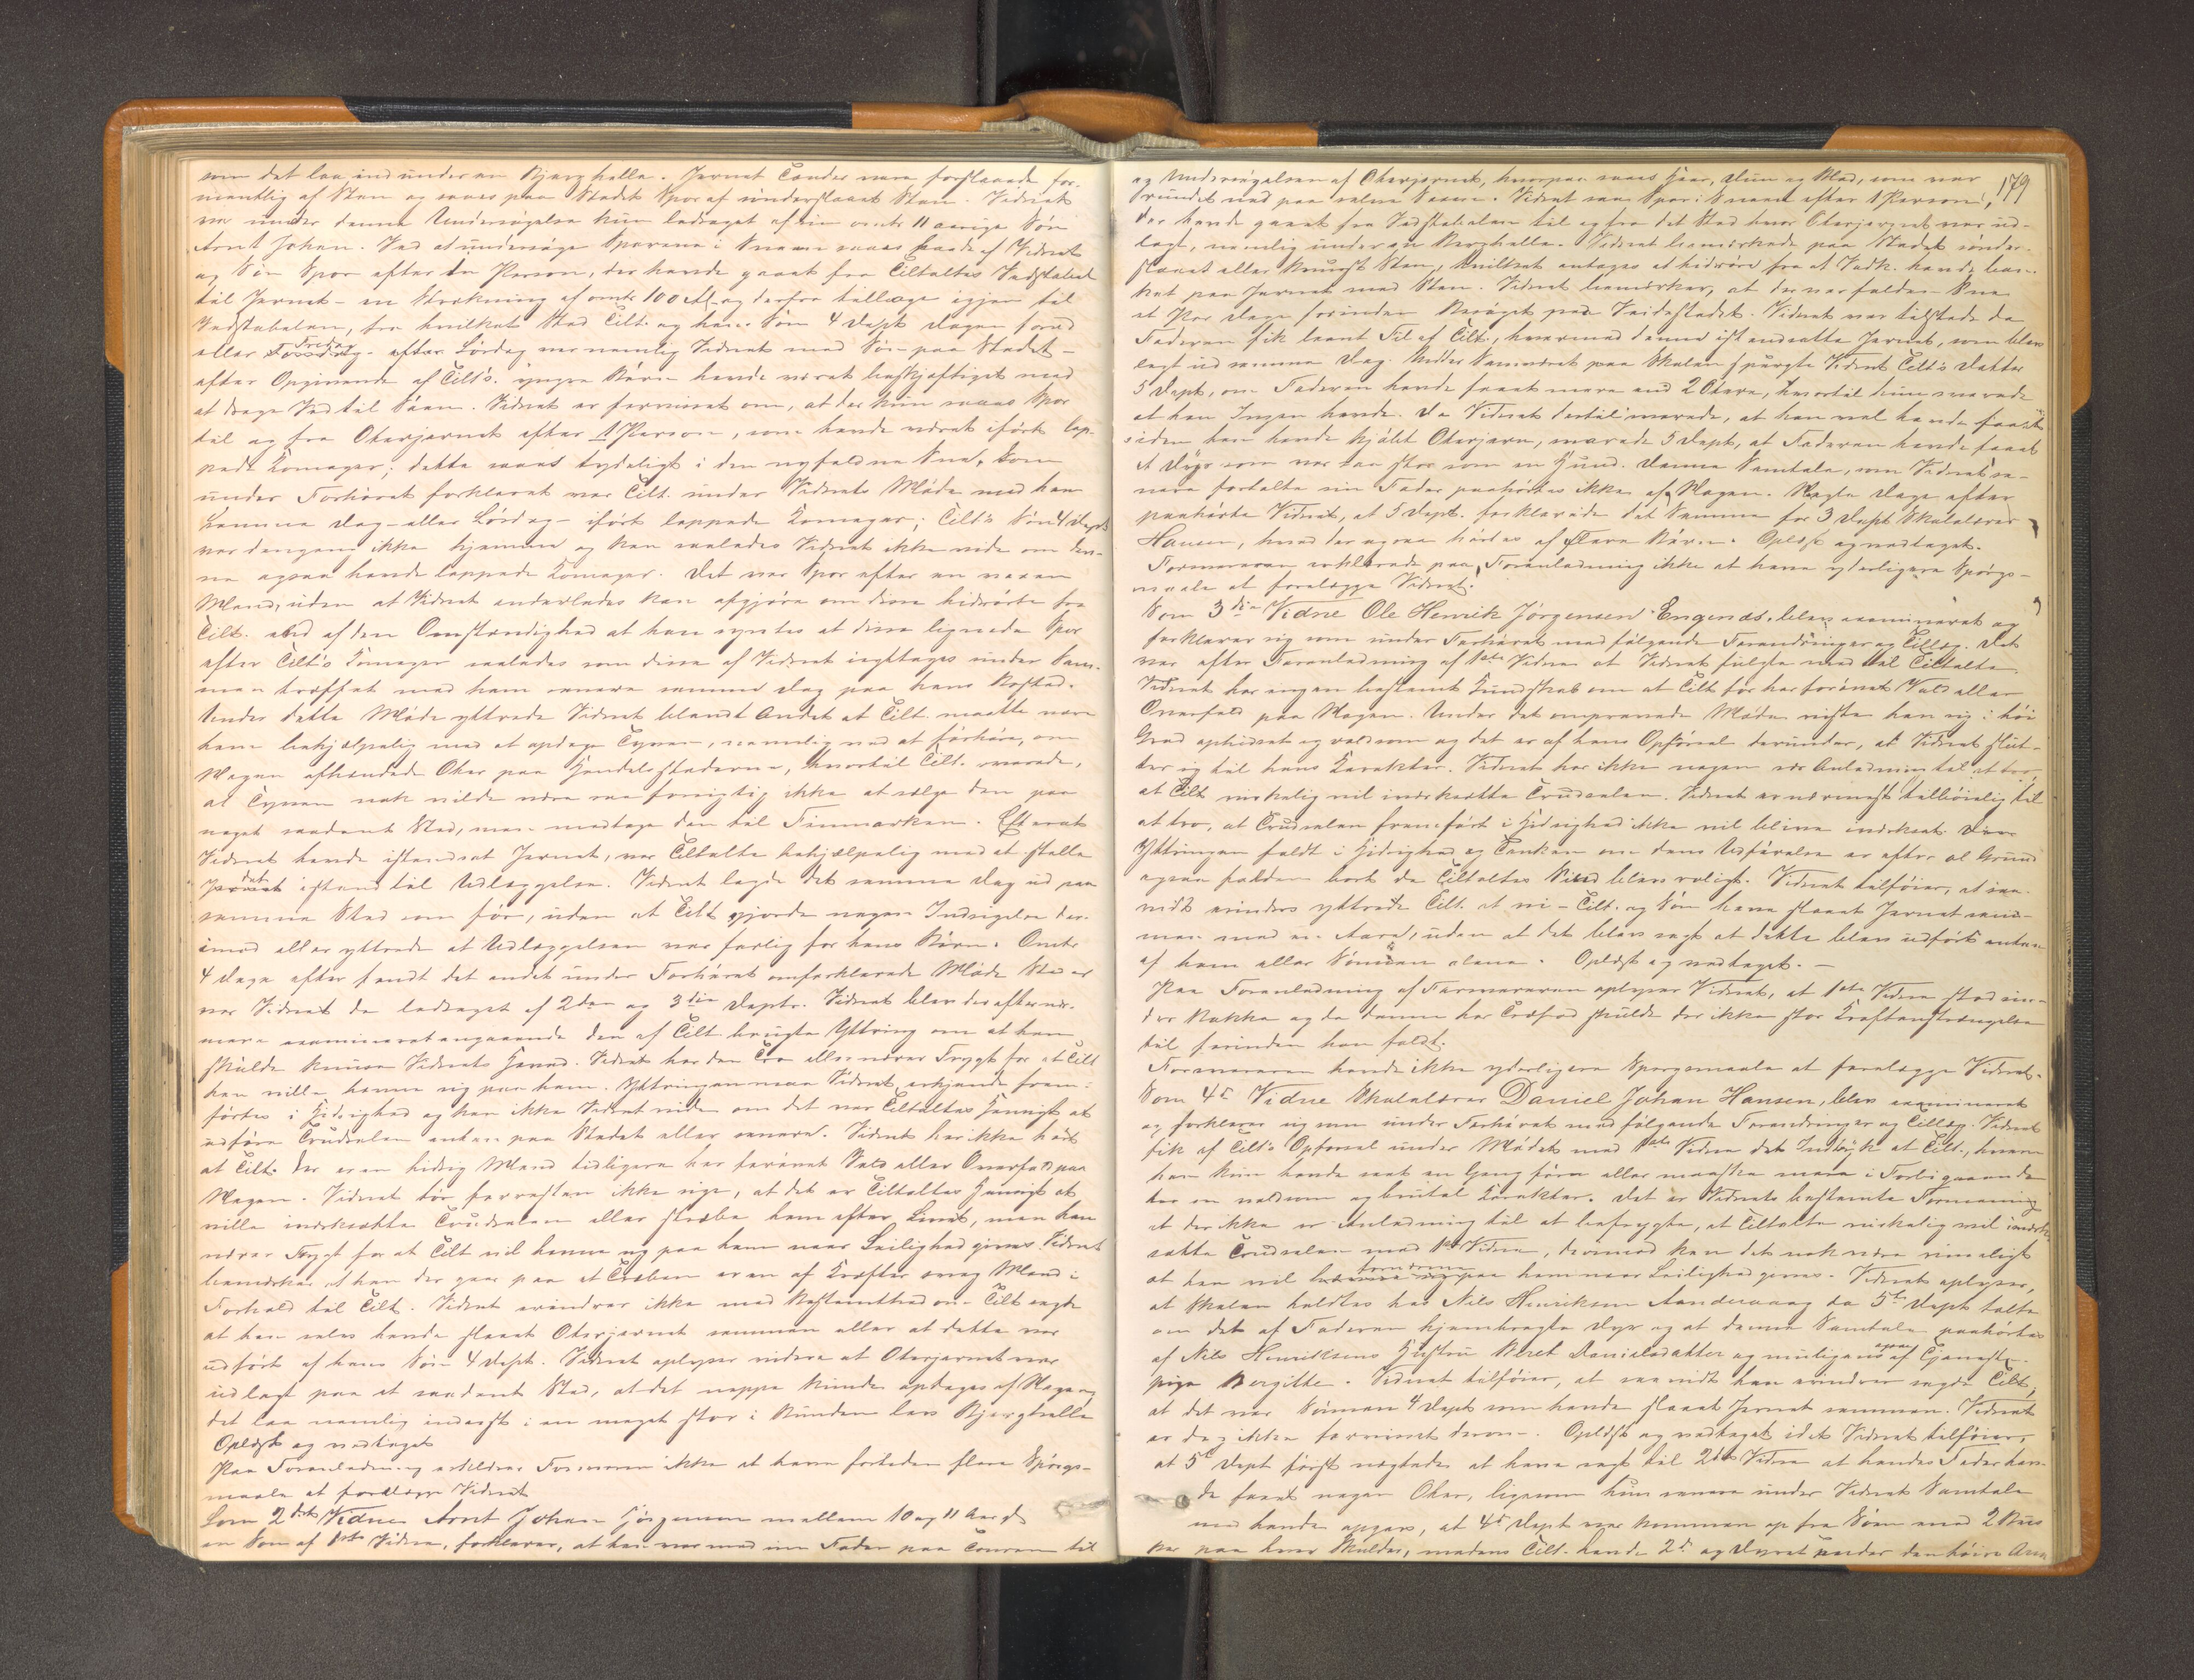 som det laa ind under en Bjerghelle. Jernet Tænder vare forslaaede for-
mentlig af Sten og saaes paa Stedet Spor af sønderslaaet Sten. Vidnet
var under denne Undersøgelse kun ledsaget af sin omtr 11 aarige Søn
Arnt Johan. Ved at undersøge Sporene i Sneen saaes baade af Vidnet
og Søn Spor efter en Person, der havde gaaet fra Tiltaltes Vedstabel
til Jernet – en Strækning af omtr 100 Al. og derfra tillige igjen til
Vedstabelen, fra hvilket Sted Tilt. og hans Søn 4 Dept dagen forud
eller Fredag efter Lørdag var nemlig Vidnet med Søn paa Stedet –
efter Opgivende af Tilt's yngre Børn havde været beskjæftiget med
at drage Ved til Søen. Vidnet er forvisset om, at der kun saaes Spor
til og fra Oterjernet efter 1 Person, som havde været iført lap-
pede Komager; dette saaes tydeligt i den nyfaldne Sne. Som
under Forhøret forklaret var Tilt. under Vidnets Møde med ham
samme Dag – eller Lørdag – iført lappede Komager; Tilt's Søn 4 Dept
var dengang ikke hjemme og kan saaledes Vidnet ikke vide om den-
ne ogsaa havde lappede Komager. Det var Spor efter en voxen
Mand, uden at Vidnet anderledes kan afgjøre om disse hidrørte fra
Tilt. end af den Omstændighed at han syntes at disse lignede Spor
efter Tilt's Komager saaledes som disse af Vidnet iagttoges under Sam-
men træffet med ham senere samme Dag paa hans Bosted.
Under dette Møde yttrede Vidnet blandt Andet at Tilt. maatte være
ham behjælpelig med at opdage Tyven, nemlig ved at forhøre, om
Nogen afhændede Oter paa Handelsstederne, hvortil Tilt. svarede,
at Tyven nok vilde være saa forsigtig ikke at sælge den paa
noget saadant Sted, men medtage den til Finmarken. Efterat
Vidnet havde istandsat Jernet, var Tiltalte behjælpelig med at stelle
det istand til Udlæggelse. Vidnet lagde det samme Dag ud paa
samme Sted som før, uden at Tilt gjorde nogen Indsigelse der-
imod eller yttrede at Udlæggelsen var farlig for hans Børn. Omtr
4 Dage efter fandt det andet under Forhøret omforklarede Møde Sted og
var Vidnet da ledsaget af 2den og 3die Deptr. Vidnet blev derefter nær-
mere examineret angaaende den af Tilt. brugte Yttring om at han
skulde knuse Vidnets Hjerne. Vidnet har den Tro eller nærer Frygt for at Tilt
kan ville hævne sig paa ham. Yttringen maa Vidnet erkjende frem-
førtes i Hidsighed og kan ikke Vidnet vide om det var Tiltaltes Hensigt at
udføre Trudselen enten paa Stedet eller senere. Vidnet har ikke hørt
at Tilt. der er en hidsig Mand tidligere har forøvet Vold eller Overfald paa
Nogen. Vidnet tør forresten ikke sige, at det er Tiltaltes Hensigt at
ville iværksætte Trudselen eller stræbe ham efter Livet, men han
nærer Frygt for at Tilt vil hævne sig paa ham naar Leilighed gives. Vidnet
bemærker at han der gaar paa et Træben er en af Kræfter svag Mand i
Forhold til Tilt. Vidnet erindrer ikke med Bestemthed om Tilt sagde
at han selv havde slaaet Oterjernet sammen eller at dette var
udført af hans Søn 4 Dept. Vidnet oplyser videre at Oterjernet var
udlagt paa et saadant Sted, at det neppe kunde opdages af Nogen,
det laa nemlig inderst i en meget stor i Bunden lav Bjerghelle
Oplæst og vedtaget
Paa Foranledning erklærer Forsvareren ikke at have fortiden flere Spørgs-
maale at forelægge Vidnet
Som 2det Vidne Arnt Johan Jørgensen mellem 10 og 11 Aar gl
en Søn af 1ste Vidne, forklarer, at han var med sin Fader paa Touren til
179
og Undersøgelsen af Oterjernet, hvorpaa saaes Haar, Dun og Blod, som var
trundet ned paa selve Saxen. Vidnet saa Spor i Sneen efter 1 Person,
der havde gaaet fra Vedstabelen til og fra det Sted hvor Oterjernet var ud-
lagt, nemlig under en Berghelle. Vidnet bemærkede paa Stedet sønder-
slaaet eller knuust Sten, hvilket antages at hidrøre fra at Vedk. havde ban-
ket paa Jernet med Sten. Vidnet bemærker, at der var falden Sne
et Par Dage forinden Besøget paa Veidestedet. Vidnet var tilstede da
Faderen fik laant Fil af Tilt., hvormed denne istandsatte Jernet, som blev
lagt ud samme Dag. Under Samværet paa Skolen spurgte Vidnet Tilt's Datter
5 Dept, om Faderen havde faaet mere end 2 Otere, hvortil hun svarede
at han Ingen havde. Da Vidnet dertil svarede, at han vel havde faaet
siden han havde kjøbt Oterjern, svarede 5 Dept, at Faderen havde faaet
et Dyr som var saa stor som en Hund. Denne Samtale, som Vidnet se-
nere fortalte sin Fader paahørtes ikke af Nogen. Nogle Dage efter
paahørte Vidnet, at 5 Dept. forklarede det Samme for 3 Dept Skolelærer
Hansen, hvad der ogsaa hørtes af flere Børn. Oplæst og vedtaget.
Forsvareren erklærede paa Foranledning ikke at have yderligere Spørgs-
maale at forelægge Vidnet.
Som 3die Vidne Ole Henrik Jørgensen Engenæs, blev examineret og
forklarer sig som under Forhøret med følgende Forandringer og Tillæg. Det
var efter Foranledning af 1ste Vidne at Vidnet fulgte med til Tiltalte
Vidnet har ingen bestemt Kundskab om at Tilt før har forøvet Vold eller
Overfald paa Nogen. Under det omprovede Møde viste han sig i høi
Grad ophidset og voldsom og det er af hans Opførsel derunder, at Vidnet slut-
ter sig til hans Karakter. Vidnet har ikke nogen Anledning til at tro,
at Tilt virkelig vil iværksætte Trudselen. Vidnet er nærmest tilbøielig til
at tro, at Trudselen fremført i Hidsighed ikke vil blive iværksat. Disse
Yttringer faldt i Hidsighed og Tanken om dens Udførelse er efter al Grund
ogsaa falden bort da Tiltaltes Sind blev roligt. Vidnet tilføier, at saa-
vidt erindres yttrede Tilt. at vi – Tilt. og Søn have slaaet Jernet sam-
men med en Aare, uden at det blev sagt at dette blev udført enten
af ham eller Sønnen alene. Oplæst og vedtaget. –
Paa Foranledning af Forsvareren oplyser Vidnet, at 1ste Vidne stod un-
der Bakke og da denne har Træfod skulde der ikke stor Kraftanstrængelse
til forinden han faldt.
Forsvareren havde ikke yderligere Spørgsmaale at forelægge Vidnet.
Som 4de Vidne Skolelærer Daniel Johan Hansen, blev examineret
og forklarer sig som under Forhøret med følgende Forandringer og Tillæg. Vidnet
fik af Tilt's Opførsel under Mødet med 1ste Vidne det Indtryk at Tilt., hvem
han kun havde seet en Gang før eller maaske mere i Forbigaaende
har en voldsom og brutal Karakter. Det er Vidnets bestemte Formening
at der ikke er Anledning til at befrygte, at Tiltalte virkelig vil iværk-
sætte Trudselen mod 1ste Vidne, derimod kan det nok være rimeligt
at han vil paa ham naar Leilighed gives. Vidnet oplyser,
at Skolen holdtes hos Nils Henriksen Sandevaag da 5te Dept talte
om det af Faderen hjembragte Dyr og at denne Samtale paahørtes
af Nils Henriksens Hustru Beret Danielsdatter og muligens ogsaa af Tjeneste-
pige Bergitte. Vidnet tilføier, at saavidt han erindrer sagde Tilt,
at det var Sønnen 4 Dept som havde slaaet Jernet sammen. Vidnet
er dog ikke forvisset derom. Oplæst og vedtaget idet Vidnet tilføier,
at 5te Dept først negtede at have sagt til 2det Vidne at hendes Fader hav-
de faaet nogen Oter, ligesom hun senere under Vidnets Samtale
med hende opgav, at 4de Dept var kommen op fra Søen med 2
par paa hver Skulder, medens Tilt. havde 2de og Dyret under den høire Arm